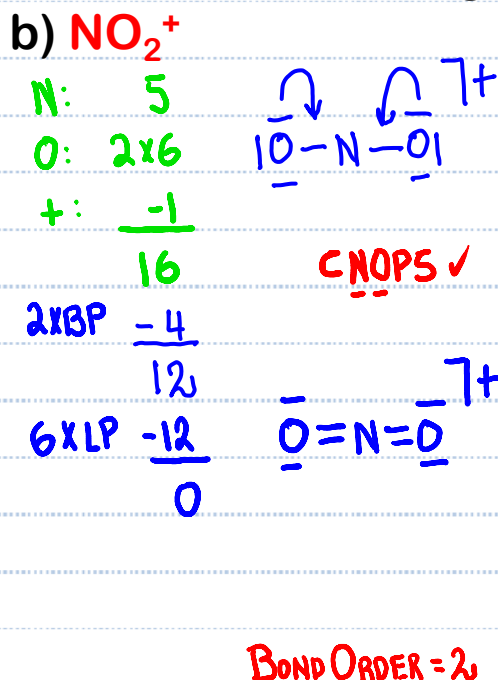 b) NO₂⁺
N: 5
O: 2x6
+: -1
16
2xBP -4
12
6xLP -12
0
7+
|O-N-O|
CNOPS ✓
7+
O=N=O
BOND ORDER = 2